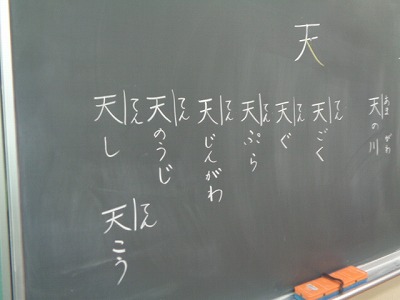 天
天の川 あま がわ
天ごく てん
天ぐ てん
天ぷら てん
天じんがわ てん
天のうじ てん
天し てん
天こう てん